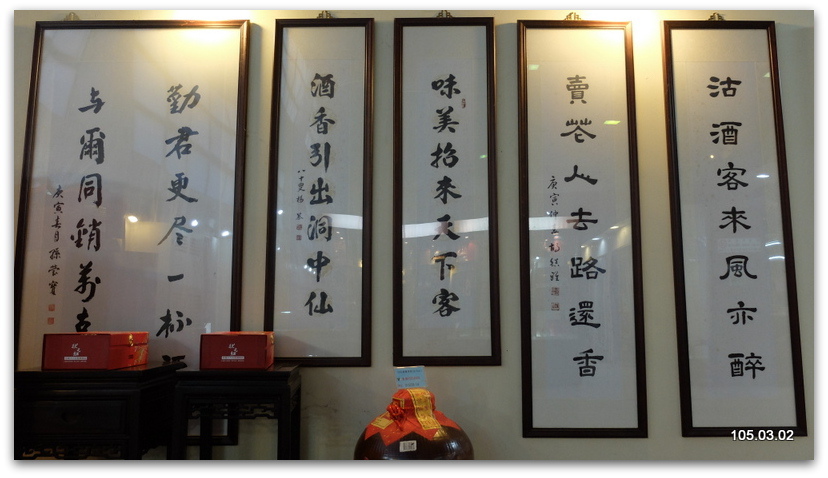 沽酒客來風亦醉
賣花人去路還香
庚寅
味美招來天下客
酒香引出洞中仙
八十叟楊
勸君更尽一杯酒
与爾同銷萬古
庚寅春月孫
105.03.02